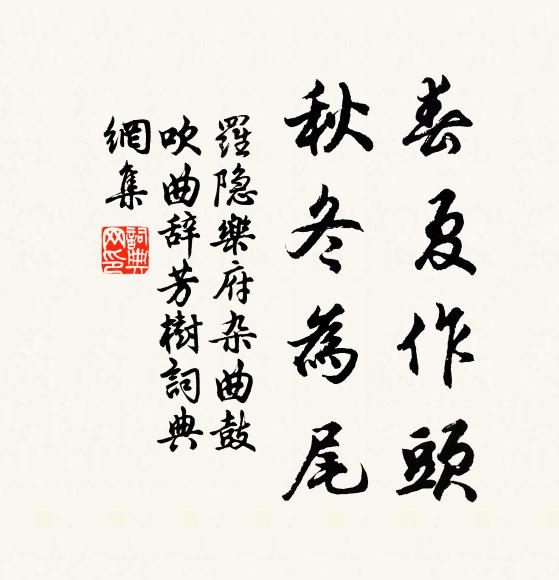 春夏作頭
秋冬為尾
羅隐樂府杂曲鼓
吹曲辞芳樹詞典
網集
詞典網印